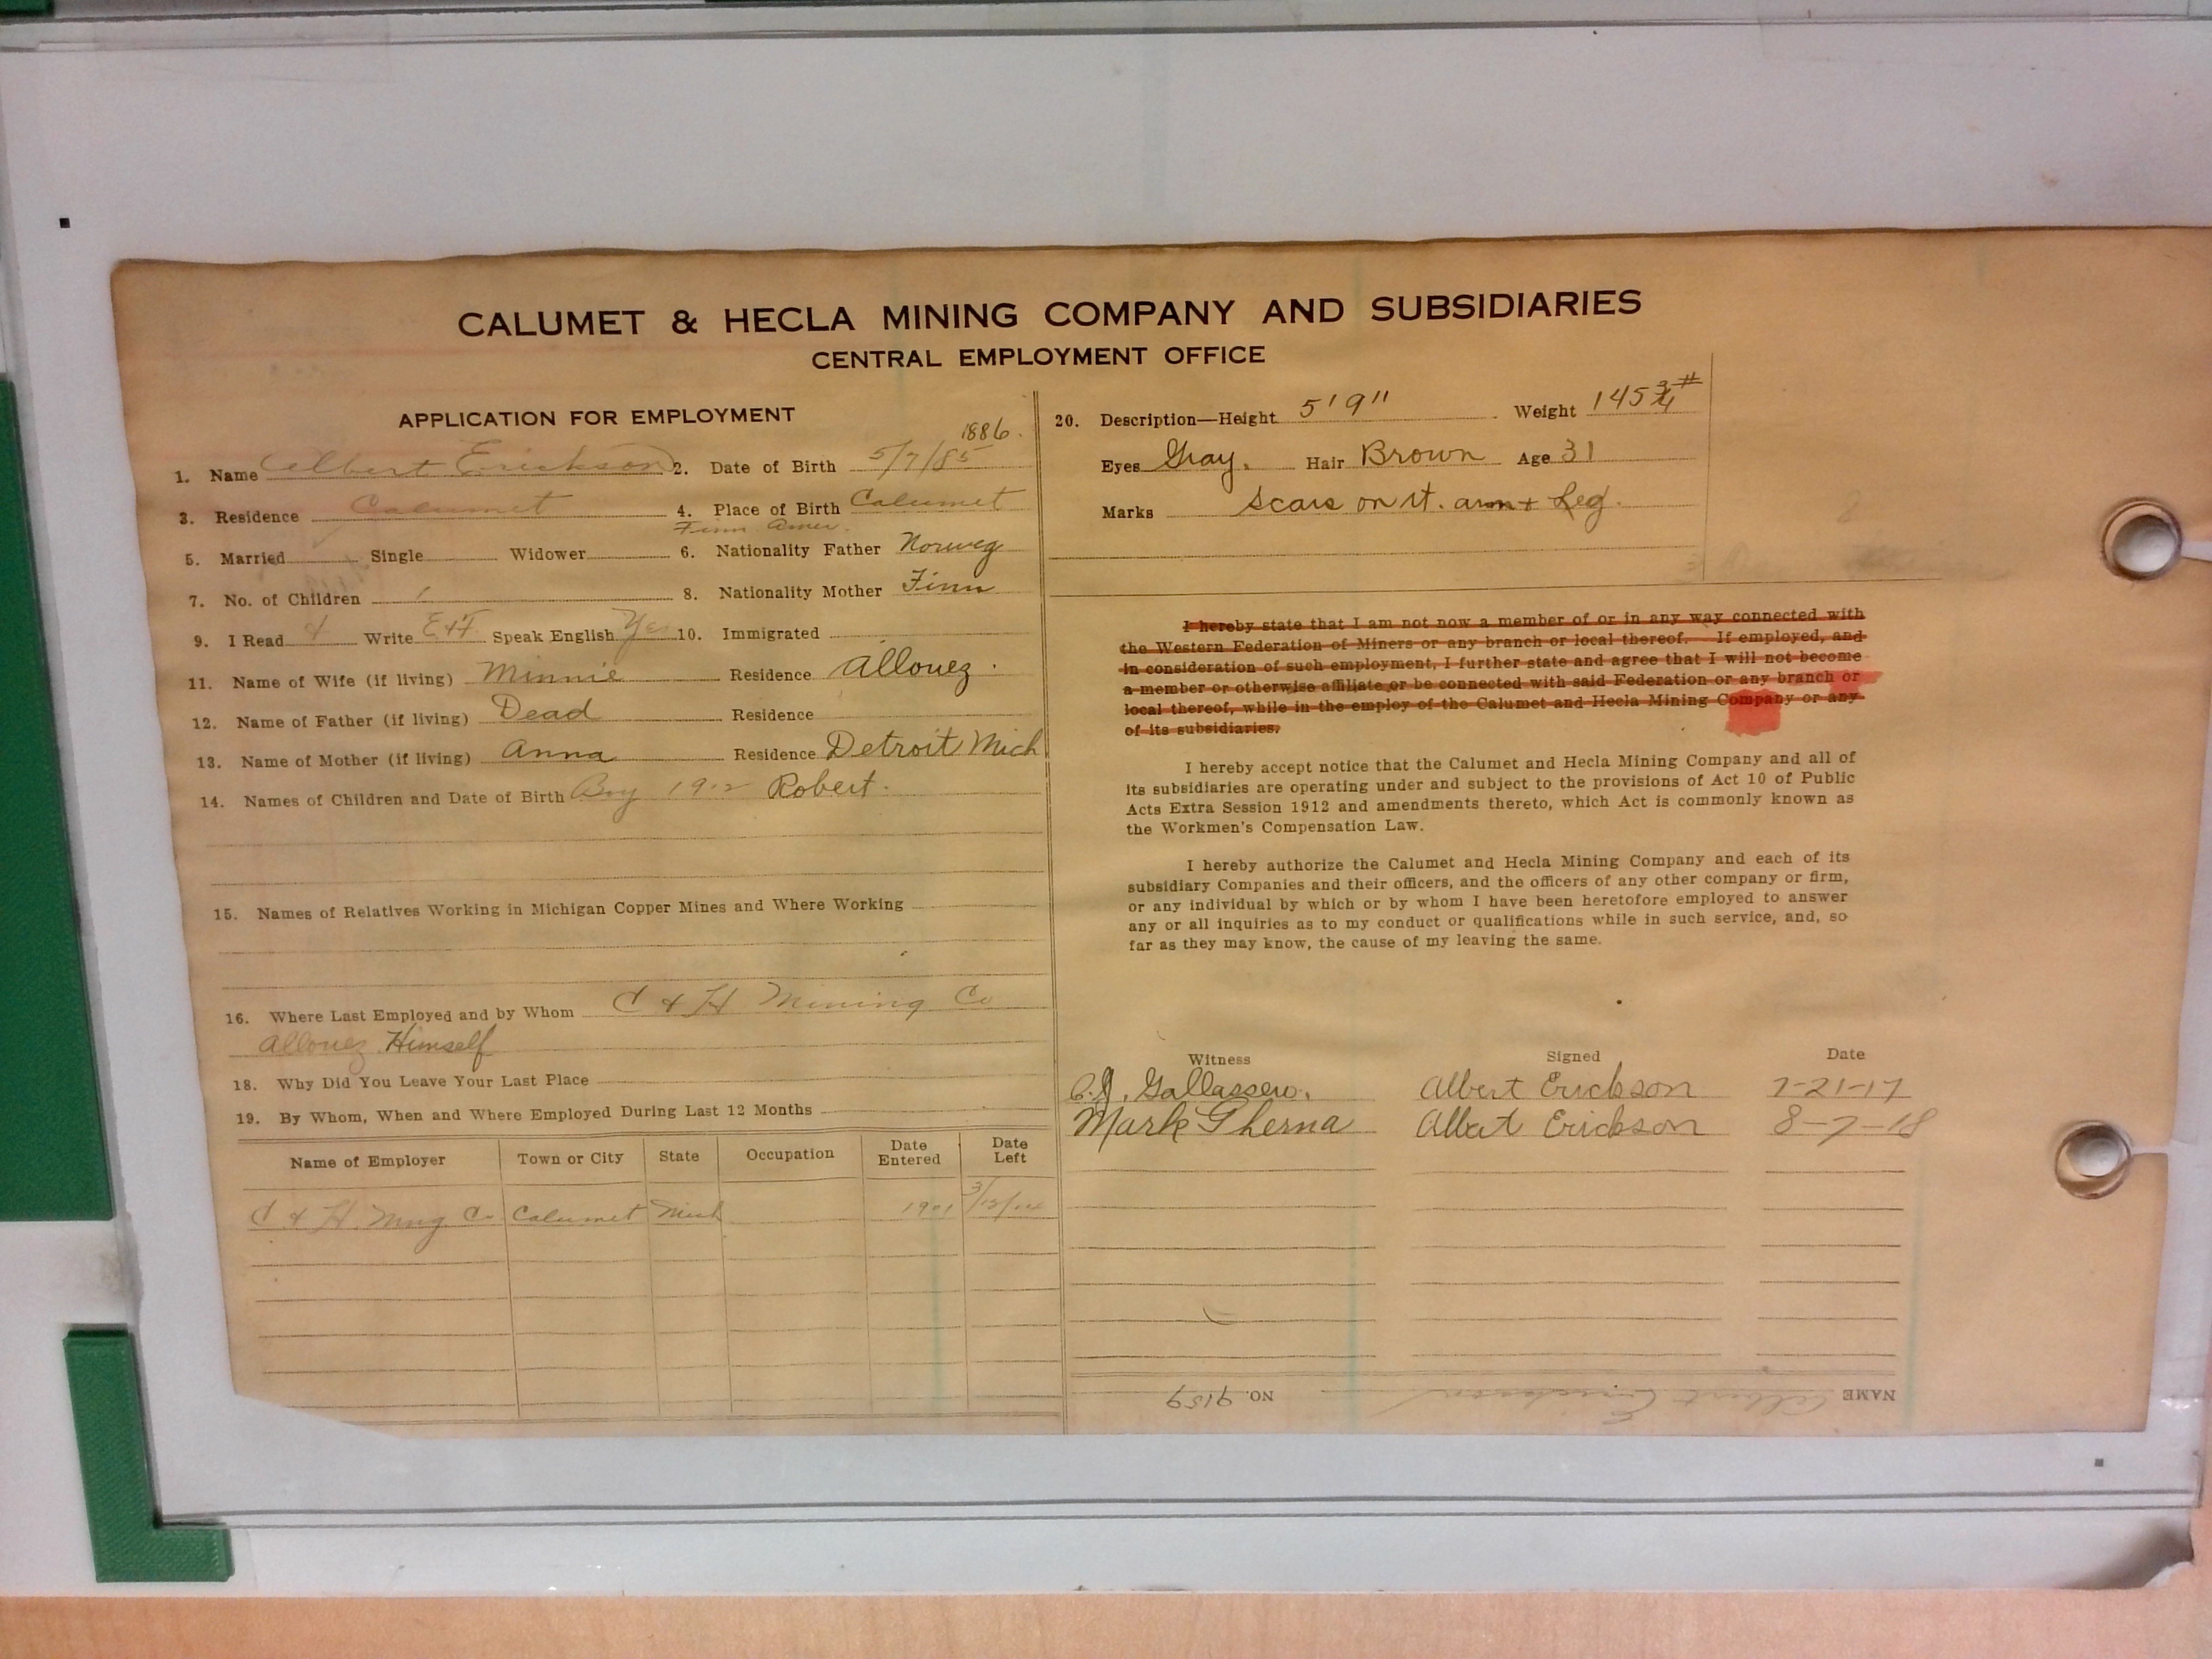 CALUMET & HECLA MINING COMPANY AND SUBSIDIARIES
CENTRAL EMPLOYMENT OFFICE
APPLICATION FOR EMPLOYMENT
1886.
1. Name Albert Erickson 2. Date of Birth 5/7/85
3. Residence Calumet 4. Place of Birth Calumet
Finn Amer.
5. Married Single Widower 6. Nationality Father Norweg
7. No. of Children 1 8. Nationality Mother Finn
9. I Read Write E+F Speak English Yes 10. Immigrated
11. Name of Wife (if living) Minnie Residence Allouez.
12. Name of Father (if living) Dead Residence
13. Name of Mother (if living) Anna Residence Detroit Mich
14. Names of Children and Date of Birth Boy Robert.
15. Names of Relatives Working in Michigan Copper Mines and Where Working
16. Where Last Employed and by Whom C & H Mining Co
Allouez Himself
18. Why Did You Leave Your Last Place
19. By Whom, When and Where Employed During Last 12 Months
Name of Employer Town or City State Occupation Date Entered Date Left
C & H. Mng Co Calumet Mich 1901 3/15/14
20. Description—Height 5'9" Weight 145 3/4 #
Eyes Gray. Hair Brown Age 31
Marks Scars on rt. arm + Leg.
I hereby state that I am not now a member of or in any way connected with
the Western Federation of Miners or any branch or local thereof. If employed, and
in consideration of such employment, I further state and agree that I will not become
a member or otherwise affiliate or be connected with said Federation or any branch or
local thereof, while in the employ of the Calumet and Hecla Mining Company or any
of its subsidiaries.
I hereby accept notice that the Calumet and Hecla Mining Company and all of
its subsidiaries are operating under and subject to the provisions of Act 10 of Public
Acts Extra Session 1912 and amendments thereto, which Act is commonly known as
the Workmen's Compensation Law.
I hereby authorize the Calumet and Hecla Mining Company and each of its
subsidiary Companies and their officers, and the officers of any other company or firm,
or any individual by which or by whom I have been heretofore employed to answer
any or all inquiries as to my conduct or qualifications while in such service, and, so
far as they may know, the cause of my leaving the same.
Witness Signed Date
C.J. Albert Erickson 7-21-17
Mark Gherna Albert Erickson 8-7-18
NAME Albert Erickson NO. 9159